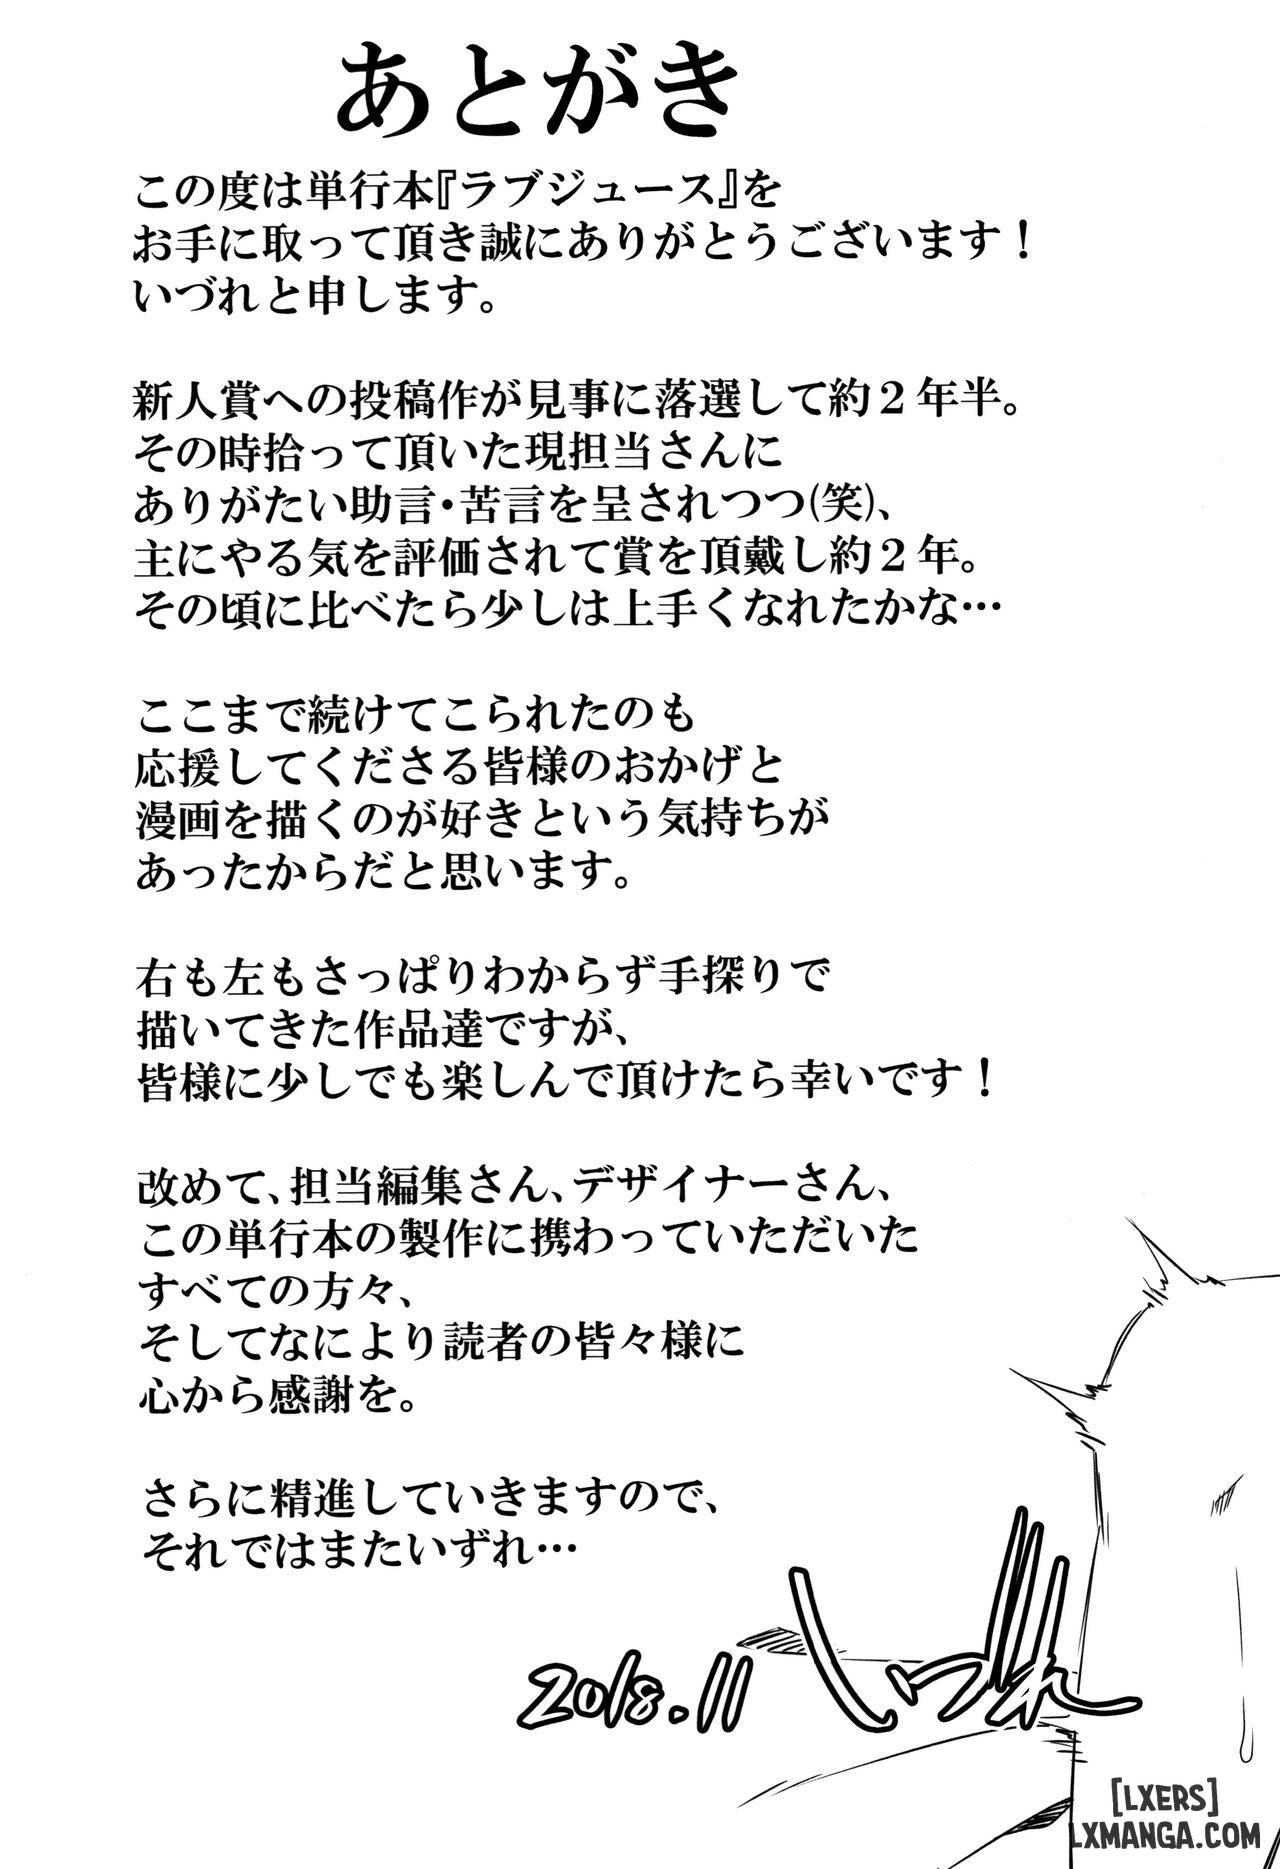 あとがき
この度は単行本『ラブジュース』を
お手に取って頂き誠にありがとうございます！
いづれと申します。
新人賞への投稿作が見事に落選して約２年半。
その時拾って頂いた現担当さんに
ありがたい助言・苦言を呈されつつ(笑)、
主にやる気を評価されて賞を頂戴し約２年。
その頃に比べたら少しは上手くなれたかな…
ここまで続けてこられたのも
応援してくださる皆様のおかげと
漫画を描くのが好きという気持ちが
あったからだと思います。
右も左もさっぱりわからず手探りで
描いてきた作品達ですが、
皆様に少しでも楽しんで頂けたら幸いです！
改めて、担当編集さん、デザイナーさん、
この単行本の製作に携わっていただいた
すべての方々、
そしてなにより読者の皆々様に
心から感謝を。
さらに精進していきますので、
それではまたいずれ…
2018.11 いづれ
[LXERS]
LXMANGA.COM